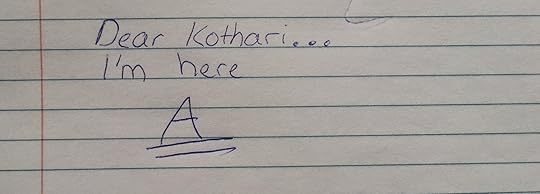 Dear Kothari...
I'm here
A